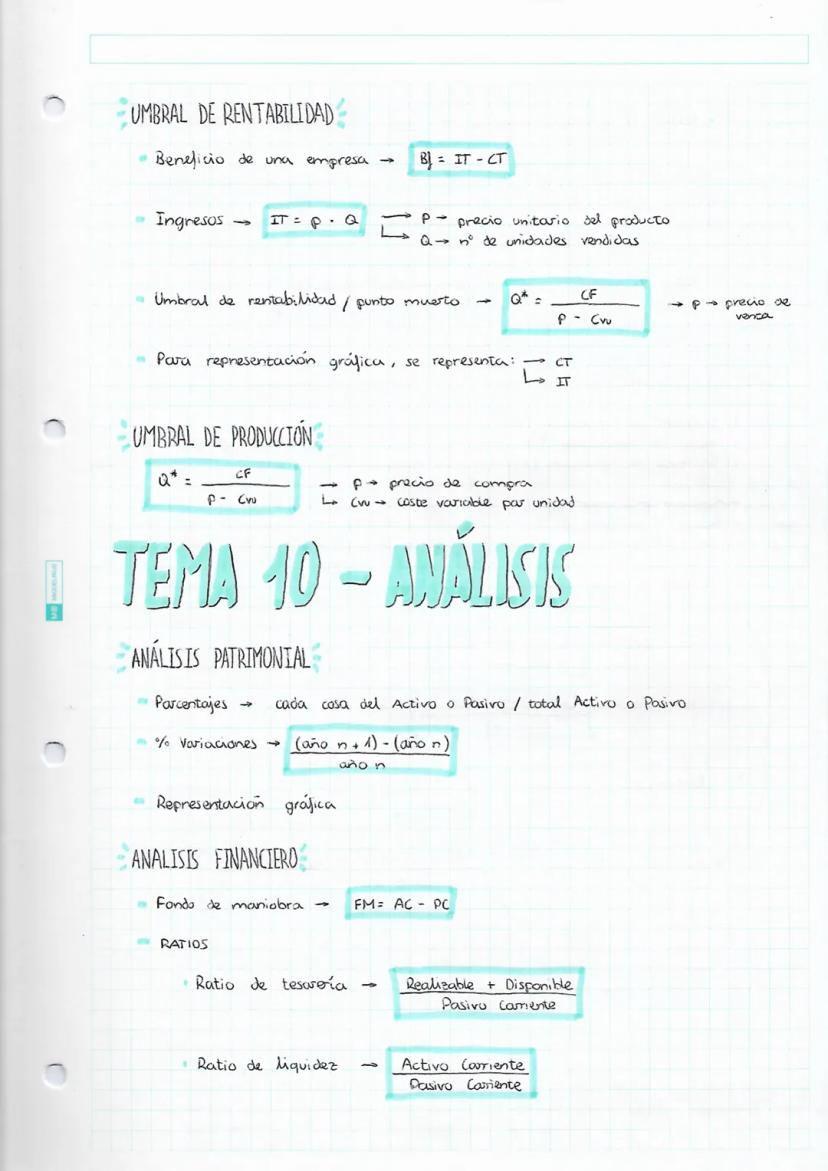 UMBRAL DE RENTABILIDAD
Beneficio de una empresa → Bf = IT - CT
Ingresos → IT = p · Q → P → precio unitario del producto
↳ Q → nº de unidades vendidas
Umbral de rentabilidad / punto muerto → Q* = CF / P - Cvu → p → precio de venta
Para representación gráfica, se representa: → CT
↳ IT
UMBRAL DE PRODUCCIÓN
Q* = CF / P - Cvu → p → precio de compra
↳ Cvu → coste variable por unidad
TEMA 10 - ANÁLISIS
ANÁLISIS PATRIMONIAL
Porcentajes → cada cosa del Activo o Pasivo / total Activo o Pasivo
% Variaciones → (año n + 1) - (año n)
año n
Representación gráfica
ANALISIS FINANCIERO
Fondo de maniobra → FM = AC - PC
RATIOS
Ratio de tesorería → Realizable + Disponible
Pasivo Corriente
Ratio de liquidez → Activo Corriente
Pasivo Corriente